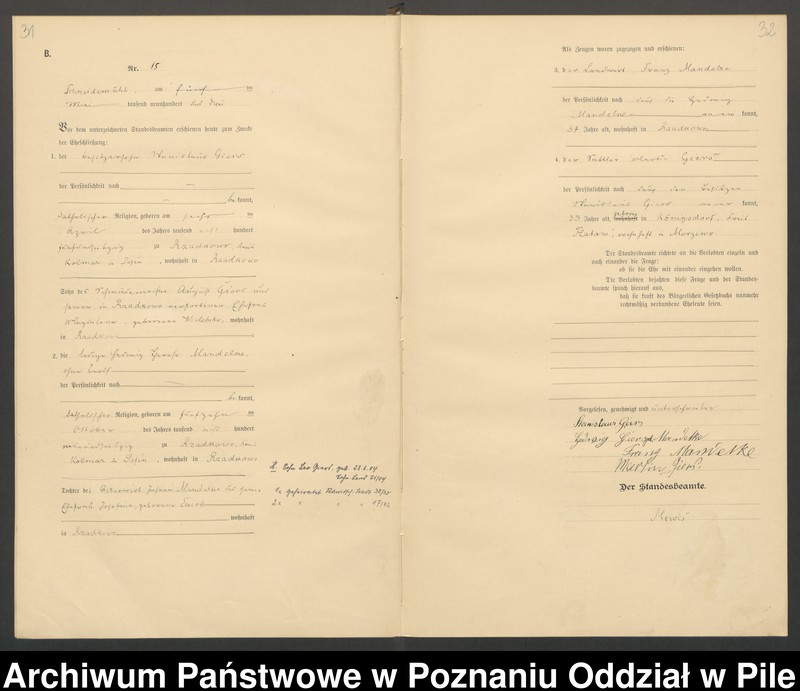 31
B.
Nr. 15
Schneidemühl, am fünf ten
Mai tausend neunhundert und drei
Vor dem unterzeichneten Standesbeamten erschienen heute zum Zwecke
der Eheschließung:
1. der Besitzersohn Stanislaus Giers
der Persönlichkeit nach —
— be kannt,
katholischer Religion, geboren am
April des Jahres tausend acht hundert
zu Rzadkowo, Kreis
Kolmar in Posen, wohnhaft in Rzadkowo
Sohn des August Giers und
seiner in Rzadkowo verstorbenen Ehefrau
Magdalena, geborenen, wohnhaft
in Rzadkowo
2. die ledige Hedwig Mandelke,
ohne Beruf
der Persönlichkeit nach —
be kannt,
katholischer Religion, geboren am fünfzehn ten
Oktober des Jahres tausend acht hundert
zu Rzadkowo, Kreis
Kolmar in Posen, wohnhaft in Rzadkowo
Tochter des Johann Mandelke und seiner
Ehefrau Josefine, geborenen
wohnhaft
in Rzadkowo
Sohn Leo Giers, geb.
1x geheiratet
2x " " "
32
Als Zeugen waren zugezogen und erschienen:
3. der Landwirt Franz Mandelke
der Persönlichkeit nach durch die Hedwig
Mandelke aner kannt,
37 Jahre alt, wohnhaft in Rzadkowo
4. der Sattler Martin Giers
der Persönlichkeit nach durch den Besitzer
Stanislaus Giers aner kannt,
33 Jahre alt, geboren wohnhaft in Königsdorf, Kreis
Flatow, wohnhaft in Morzewo
Der Standesbeamte richtete an die Verlobten einzeln und
nach einander die Frage:
ob sie die Ehe mit einander eingehen wollen.
Die Verlobten bejahten diese Frage und der Standes-
beamte sprach hierauf aus,
daß sie kraft des Bürgerlichen Gesetzbuchs nunmehr
rechtmäßig verbundene Eheleute seien.
Vorgelesen, genehmigt und unterschrieben
Stanislaus Giers
Hedwig Giers geb Mandelke
Franz Mandelke
Martin Giers.
Der Standesbeamte.
Archiwum Państwowe w Poznaniu Oddział w Pile